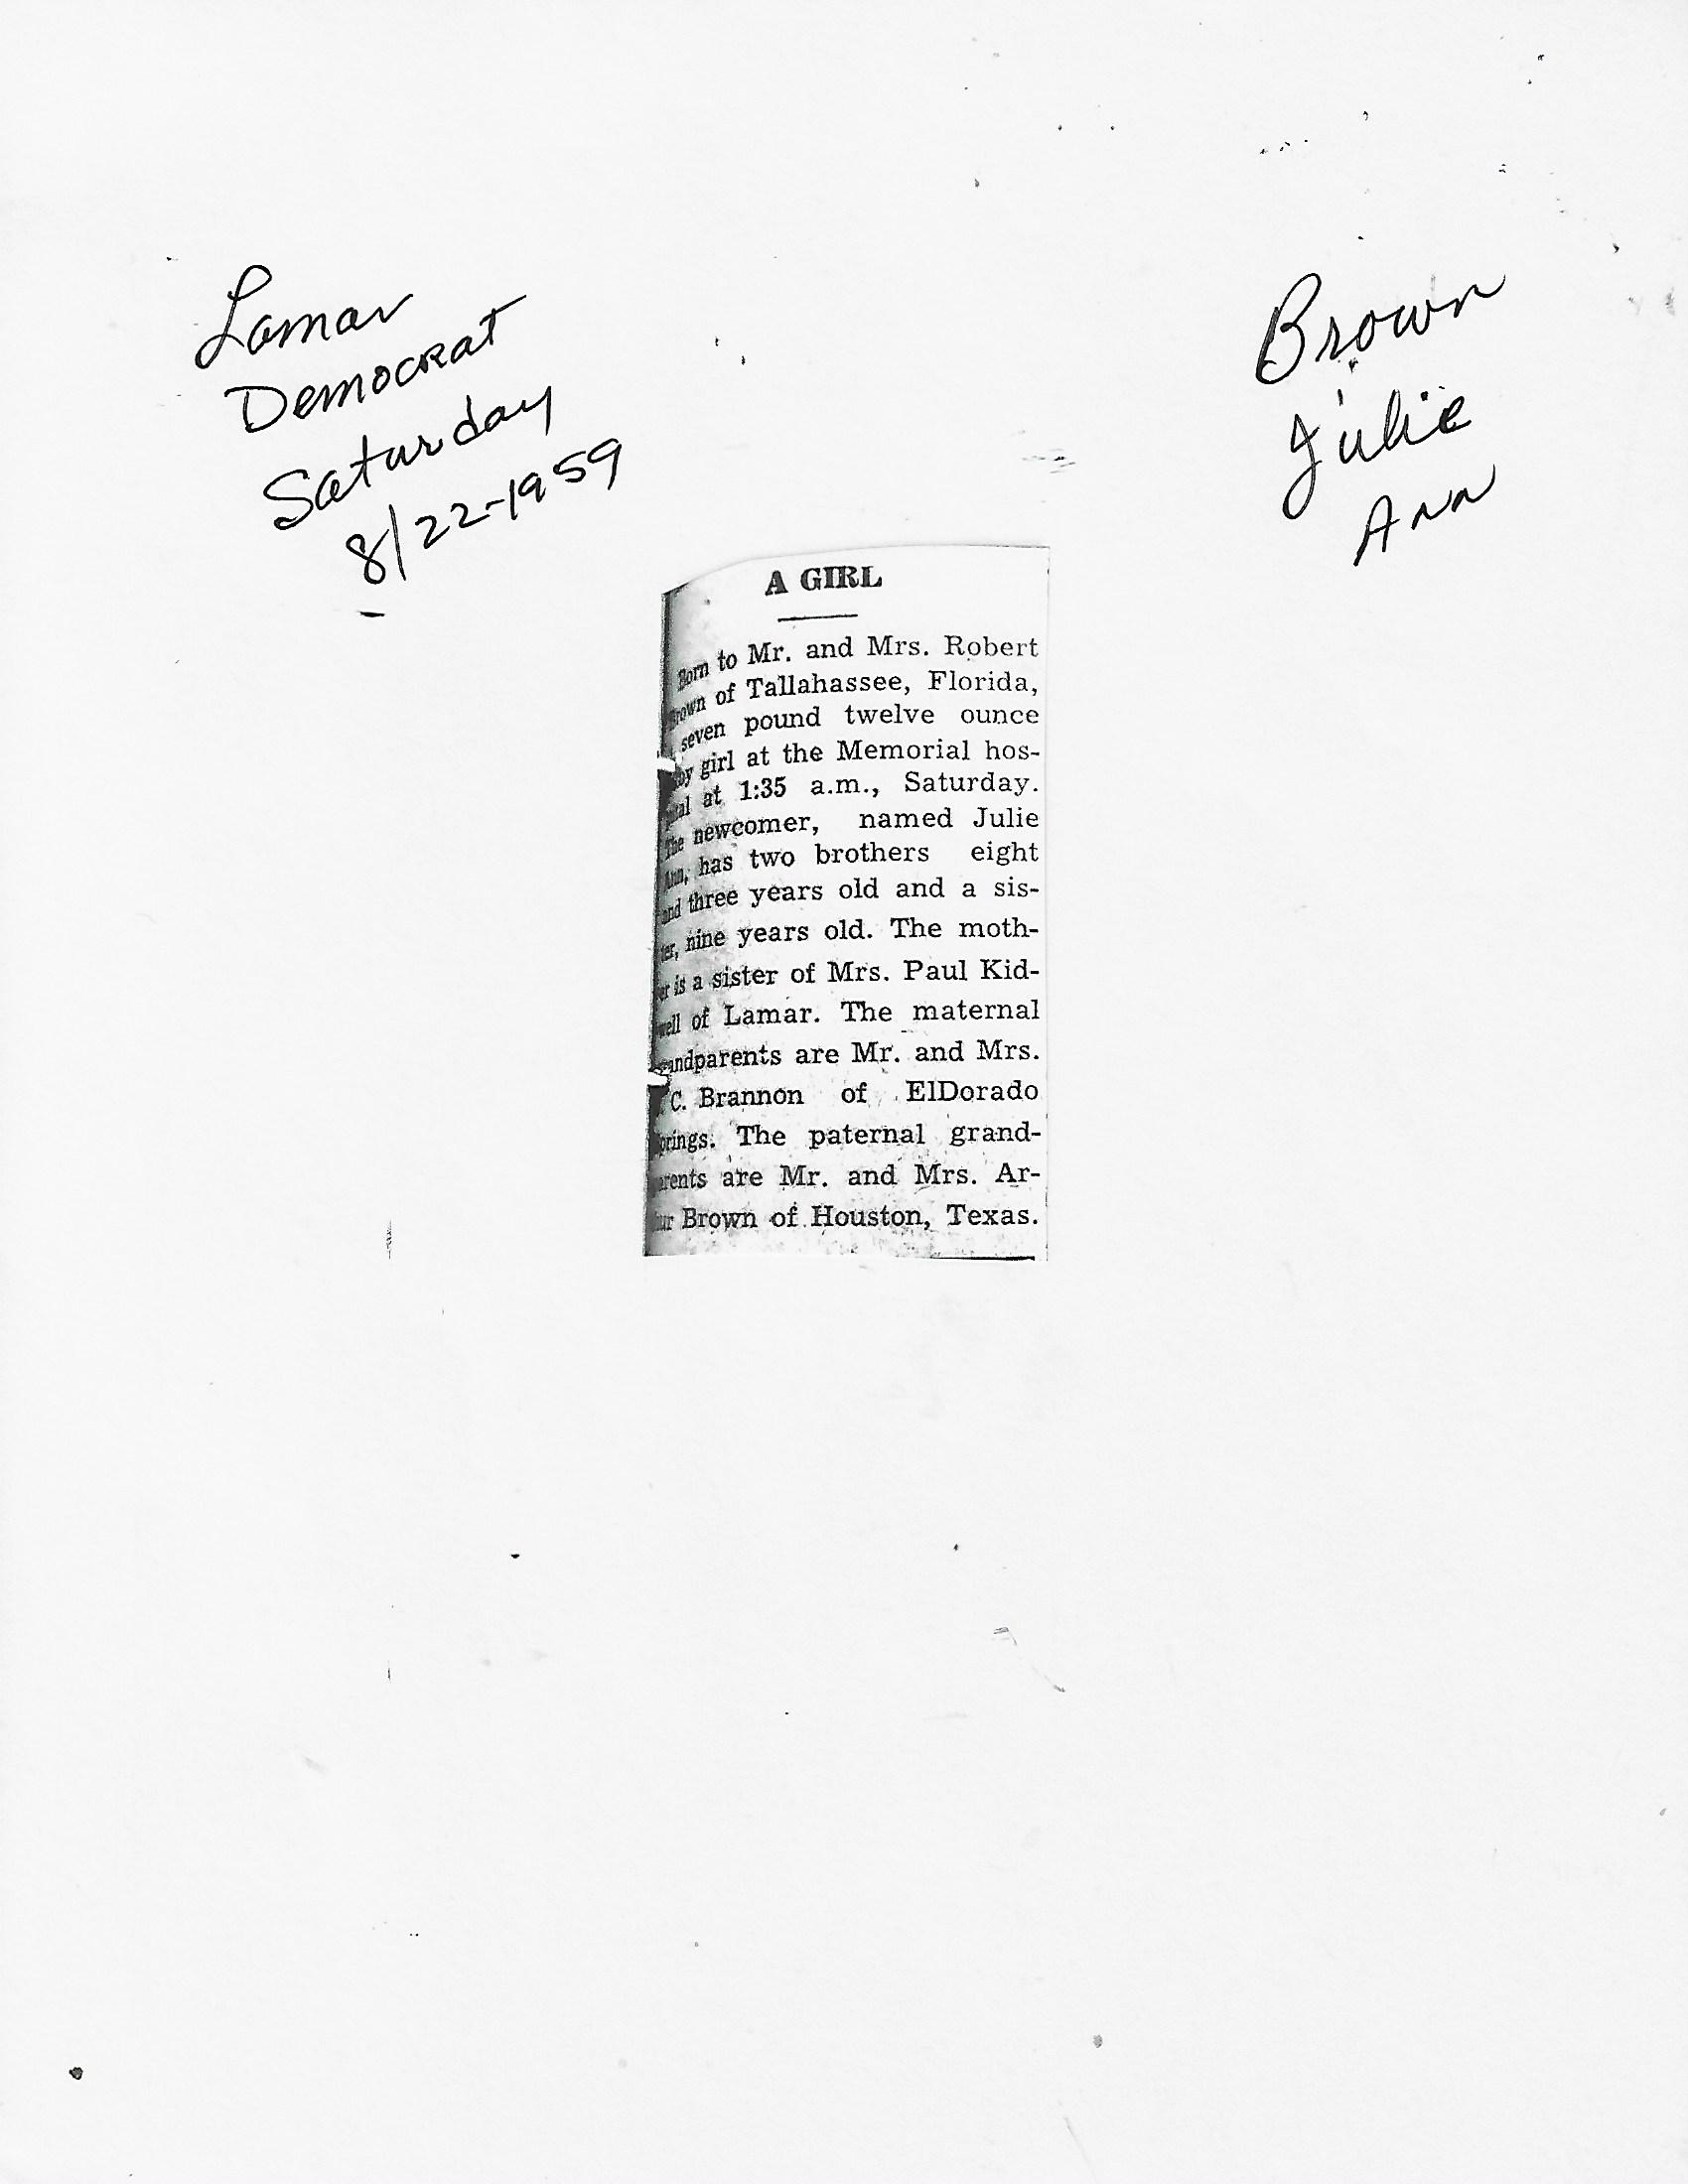 Lamar
Democrat
Saturday
8/22-1959
Brown
Julie
Ann
A GIRL
Born to Mr. and Mrs. Robert
Brown of Tallahassee, Florida,
seven pound twelve ounce
by girl at the Memorial hos-
pital at 1:35 a.m., Saturday.
The newcomer, named Julie
Ann, has two brothers eight
and three years old and a sis-
ter, nine years old. The moth-
er is a sister of Mrs. Paul Kid-
well of Lamar. The maternal
andparents are Mr. and Mrs.
C. Brannon of ElDorado
prings. The paternal grand-
arents are Mr. and Mrs. Ar-
ur Brown of Houston, Texas.